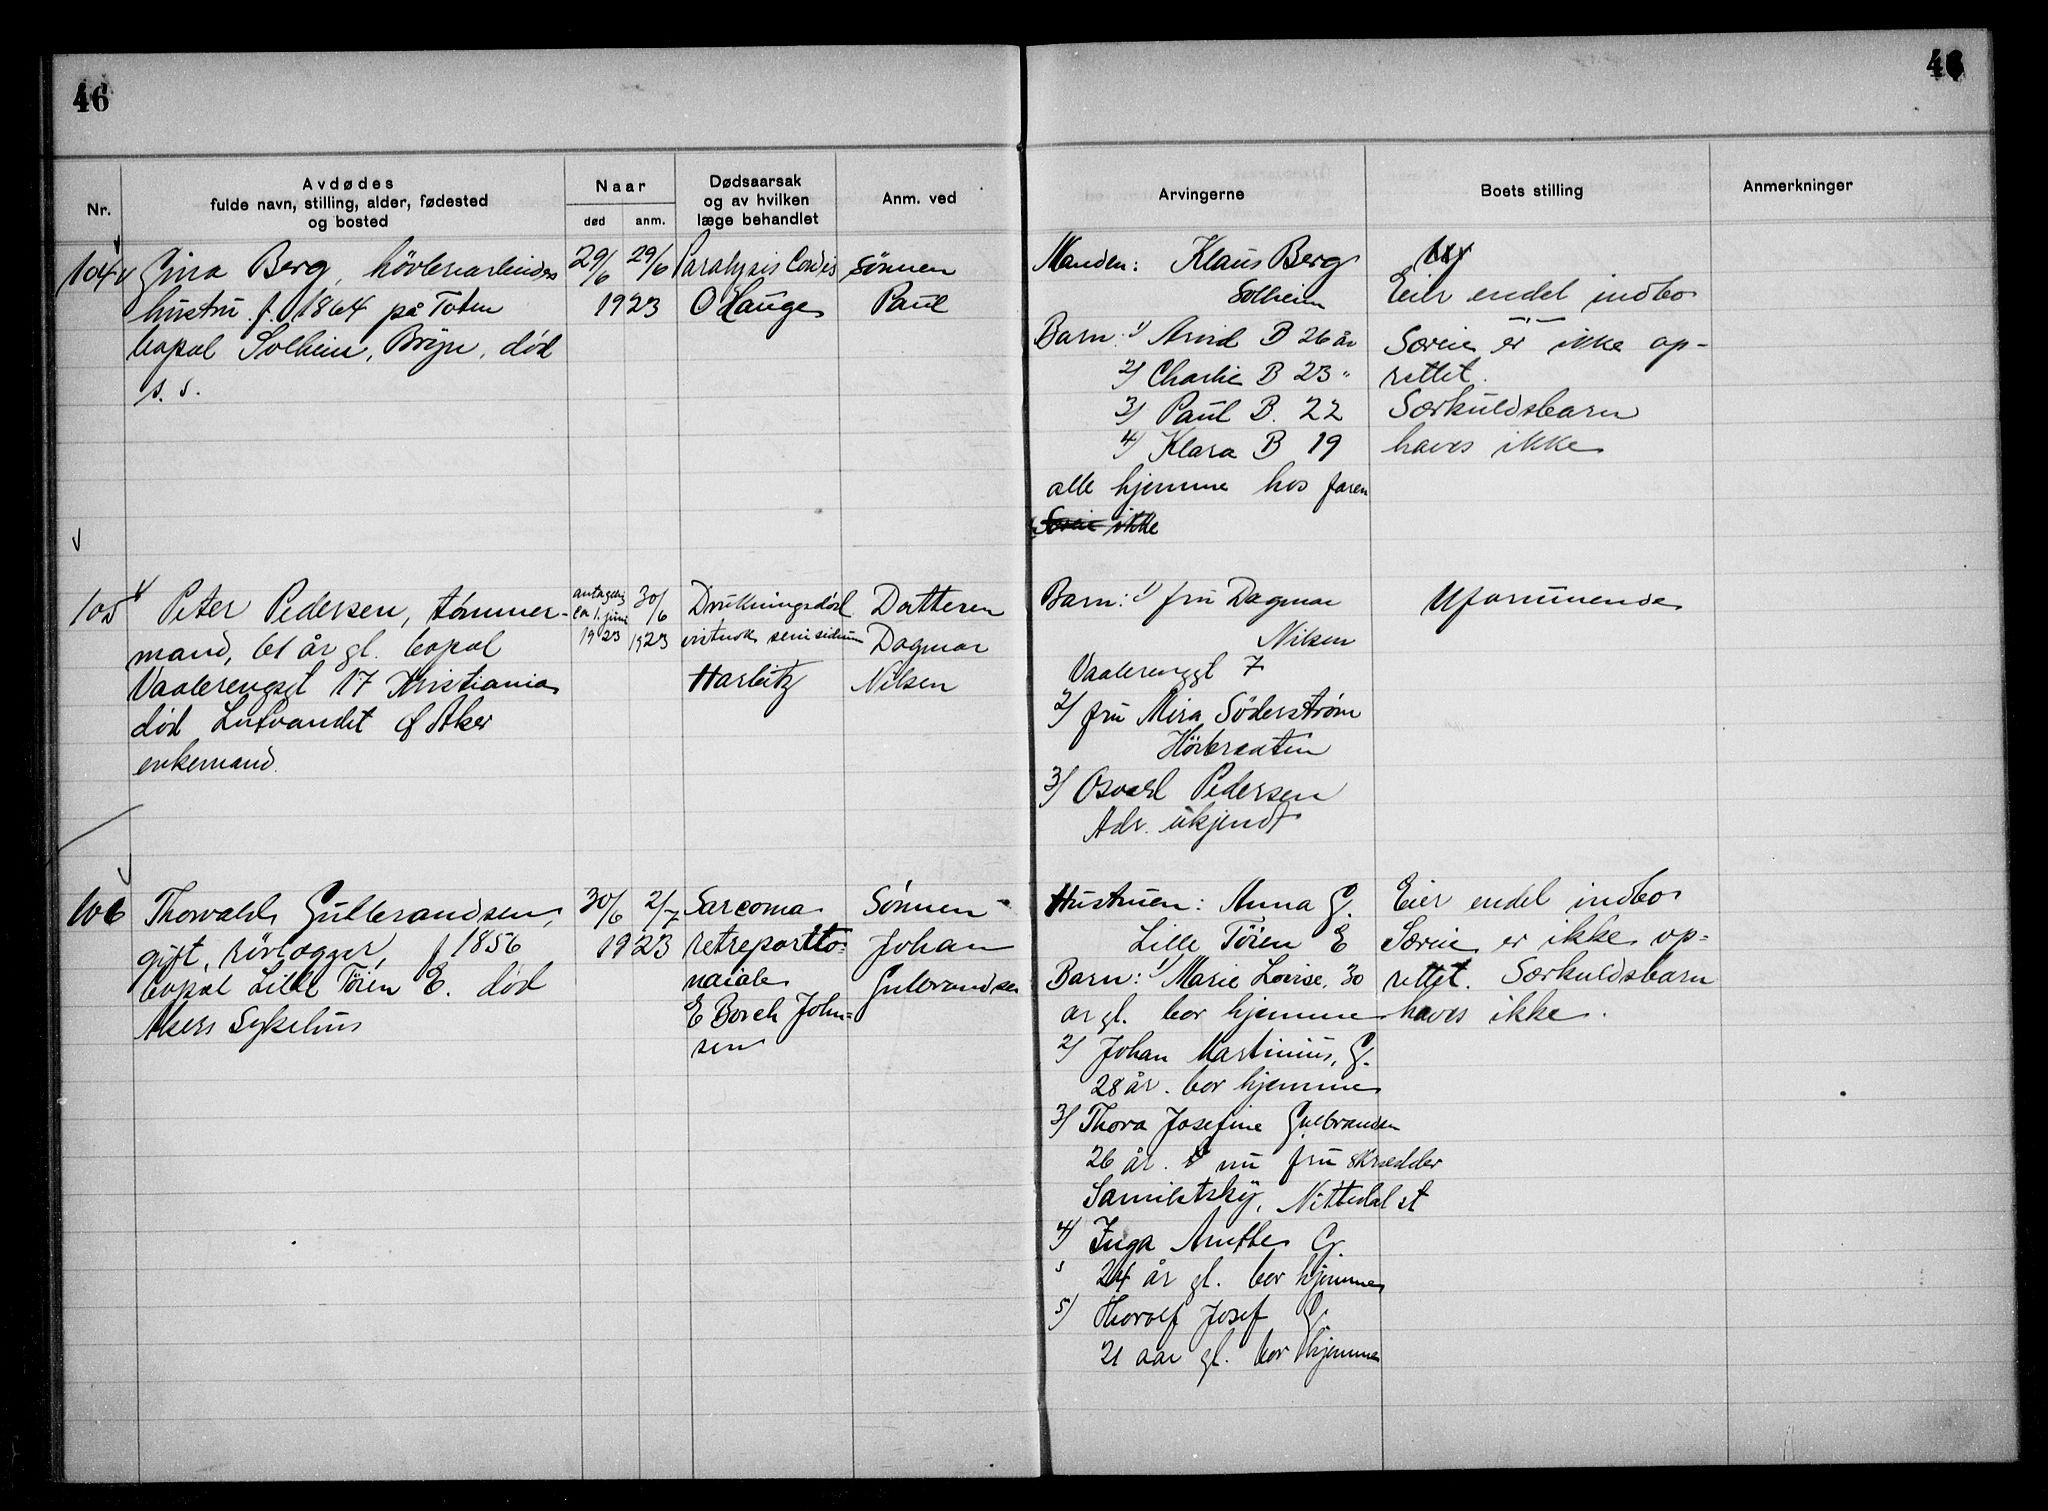 46
46
Nr.
Avdødes
fulde navn, stilling, alder, fødested
og bosted
Naar
død
anm.
Dødsaarsak
og av hvilken
læge behandlet
Anm. ved
Arvingerne
Boets stilling
Anmerkninger
104
Gina Berg, høvleriarbeiders
hustru f. 1864 på Toten
bopæl Solheim, Bryn, død
s. s.
29/6 29/6
1923
Paralysis Cordis
O Hauge
Sønnen
Paul
Manden: Klaus Berg
Solheim
Barn: 1) Arvid B 26 år
2) Charlie B 23 "
3) Paul B. 22
4) Klara B 19
alle hjemme hos faren
Særeie ikke
Eier endel indbo
Særeie er ikke op-
rettet.
Særkuldsbarn
haves ikke
105
Peter Pedersen, tømmer-
mand, 61 år gl. bopæl
Vaalerengsgt 17 Kristiania
død Lutvandet Ø Aker
enkemand.
antagelig
ca 1. juni
1923
30/6
1923
Drukningsdød
vistnok
Harbitz
Datteren
Dagmar
Nilsen
Barn: 1) fru Dagmar
Nilsen
Vaalerenggt 7
2) fru Mira Söderstrøm
Høibraaten
3) Osvald Pedersen
Adr. ukjendt
Uformuende
106
Thorvald Gulbrandsen,
gift, rörlægger, f 1856
bopæl Lille Tøien E. død
Akers Sykehus
30/6 2/7
1923
Sarcoma
retreperitto-
naiale
E Borch John-
sen
Sønnen
Johan
Gulbrandsen
Hustruen: Anna G.
Lille Tøien E
Barn: 1) Marie Lovise, 30
ar gl. bor hjemme
2) Johan Martinius, G.
28 år. bor hjemme
3) Thora Josefine Gulbrandsen
26 år. nu fru skrædder
Nittedal st
4) Inga Anette G.
24 år gl. bor hjemme
5) Thorolf Josef G.
21 aar gl. bor hjemme
Eier endel indbo
Særeie er ikke op-
rettet. Særkuldsbarn
haves ikke.